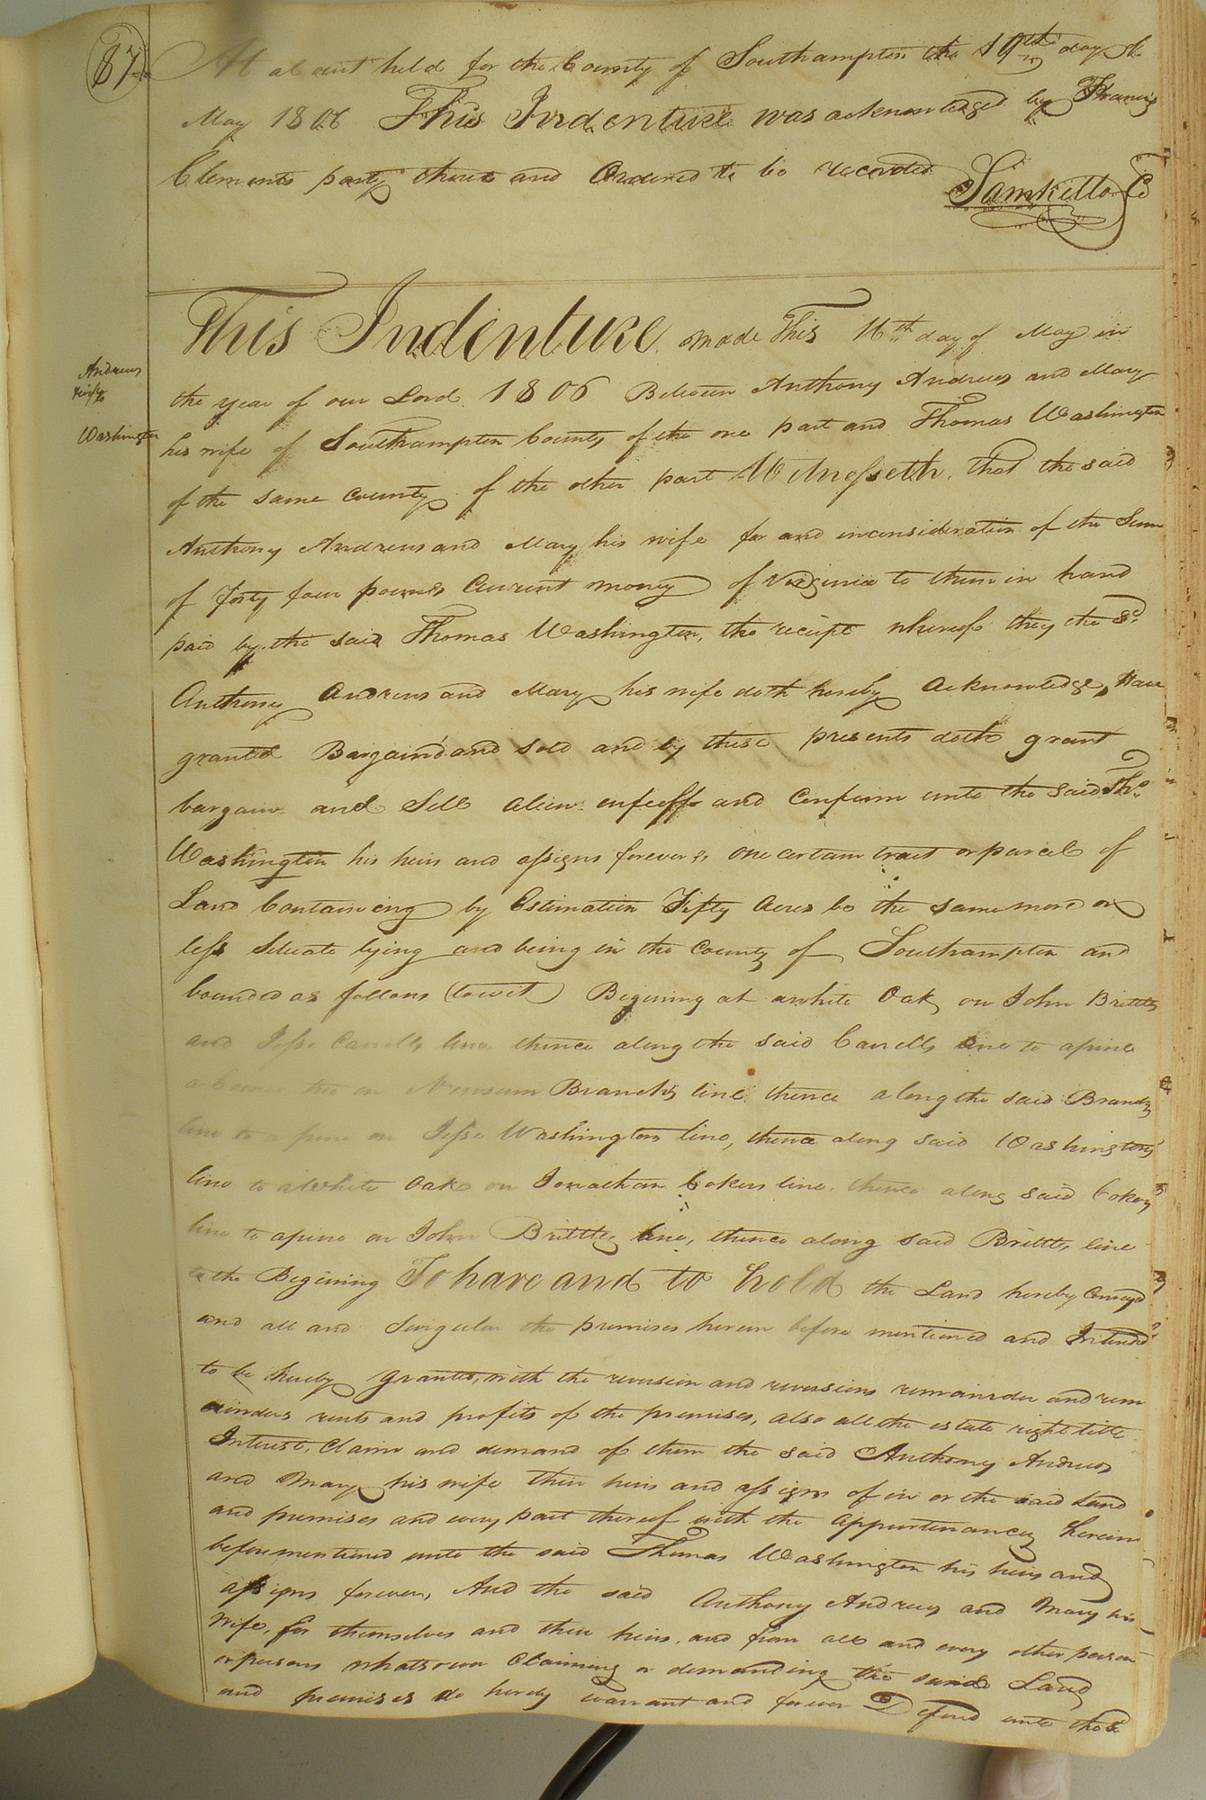 87
At a Court held for the County of Southampton the 19th day of
May 1806 This Indenture was acknowledged by Francis
Clements party thereto and Ordered to be recorded
Saml Kello CC
Andrews
Washington
This Indenture made This 16th day of May in
the year of our Lord 1806 Between Anthony Andrews and Mary
his wife of Southampton County of the one part and Thomas Washington
of the same County of the other part Witnesseth, that the said
Anthony Andrews and Mary his wife for and inconsideration of the Sum
of forty four pounds Current money of Virginia to them in hand
paid by the said Thomas Washington, the reciept whereof they the Sd
Anthony Andrews and Mary his wife doth hereby Acknowledge, Have
granted Bargaind and sold and by these presents doth grant
bargain and Sell alien enfeoff and Confirm unto the said Tho.
Washington his heirs and assigns forever, one certain tract or parcel of
Land Containeing by Estimation Fifty Acres be the same more or
less Situate lying and being in the County of Southampton and
bounded as follows (towit) Begining at a white Oak on John Brittles
and Jesse Carrells line thence along the said Carrells line to a pine
on Newsum Branch's line, thence along the said Branchs
line to a pine on Jesse Washingtons line, thence along said Washingtons
line to a White Oak on Jonathan Cokers line, thence along said Cokers
line to a pine on John Brittles line, thence along said Brittles line
to the Begining To have and to hold the Land hereby Conveyd
and all and Singular the premises herein before mentioned and Intended
to be hereby granted, with the reversion and reversions remainder and rem
ainders rents and profits of the premises, also all the estate right title
Interest, Claim and demand of them the said Anthony Andrews
and Mary his wife their heirs and assigns of in or the said Land
and premises and every part thereof with the appurtenances herein
beforementioned unto the said Thomas Washington his heirs and
assigns forever, And the said Anthony Andrews and Mary his
Wife, for themselves and their heirs, and from all and every other person
or persons whatsoever Claiming or demanding the said Land
and premises do hereby warrant and forever Defend unto the sd